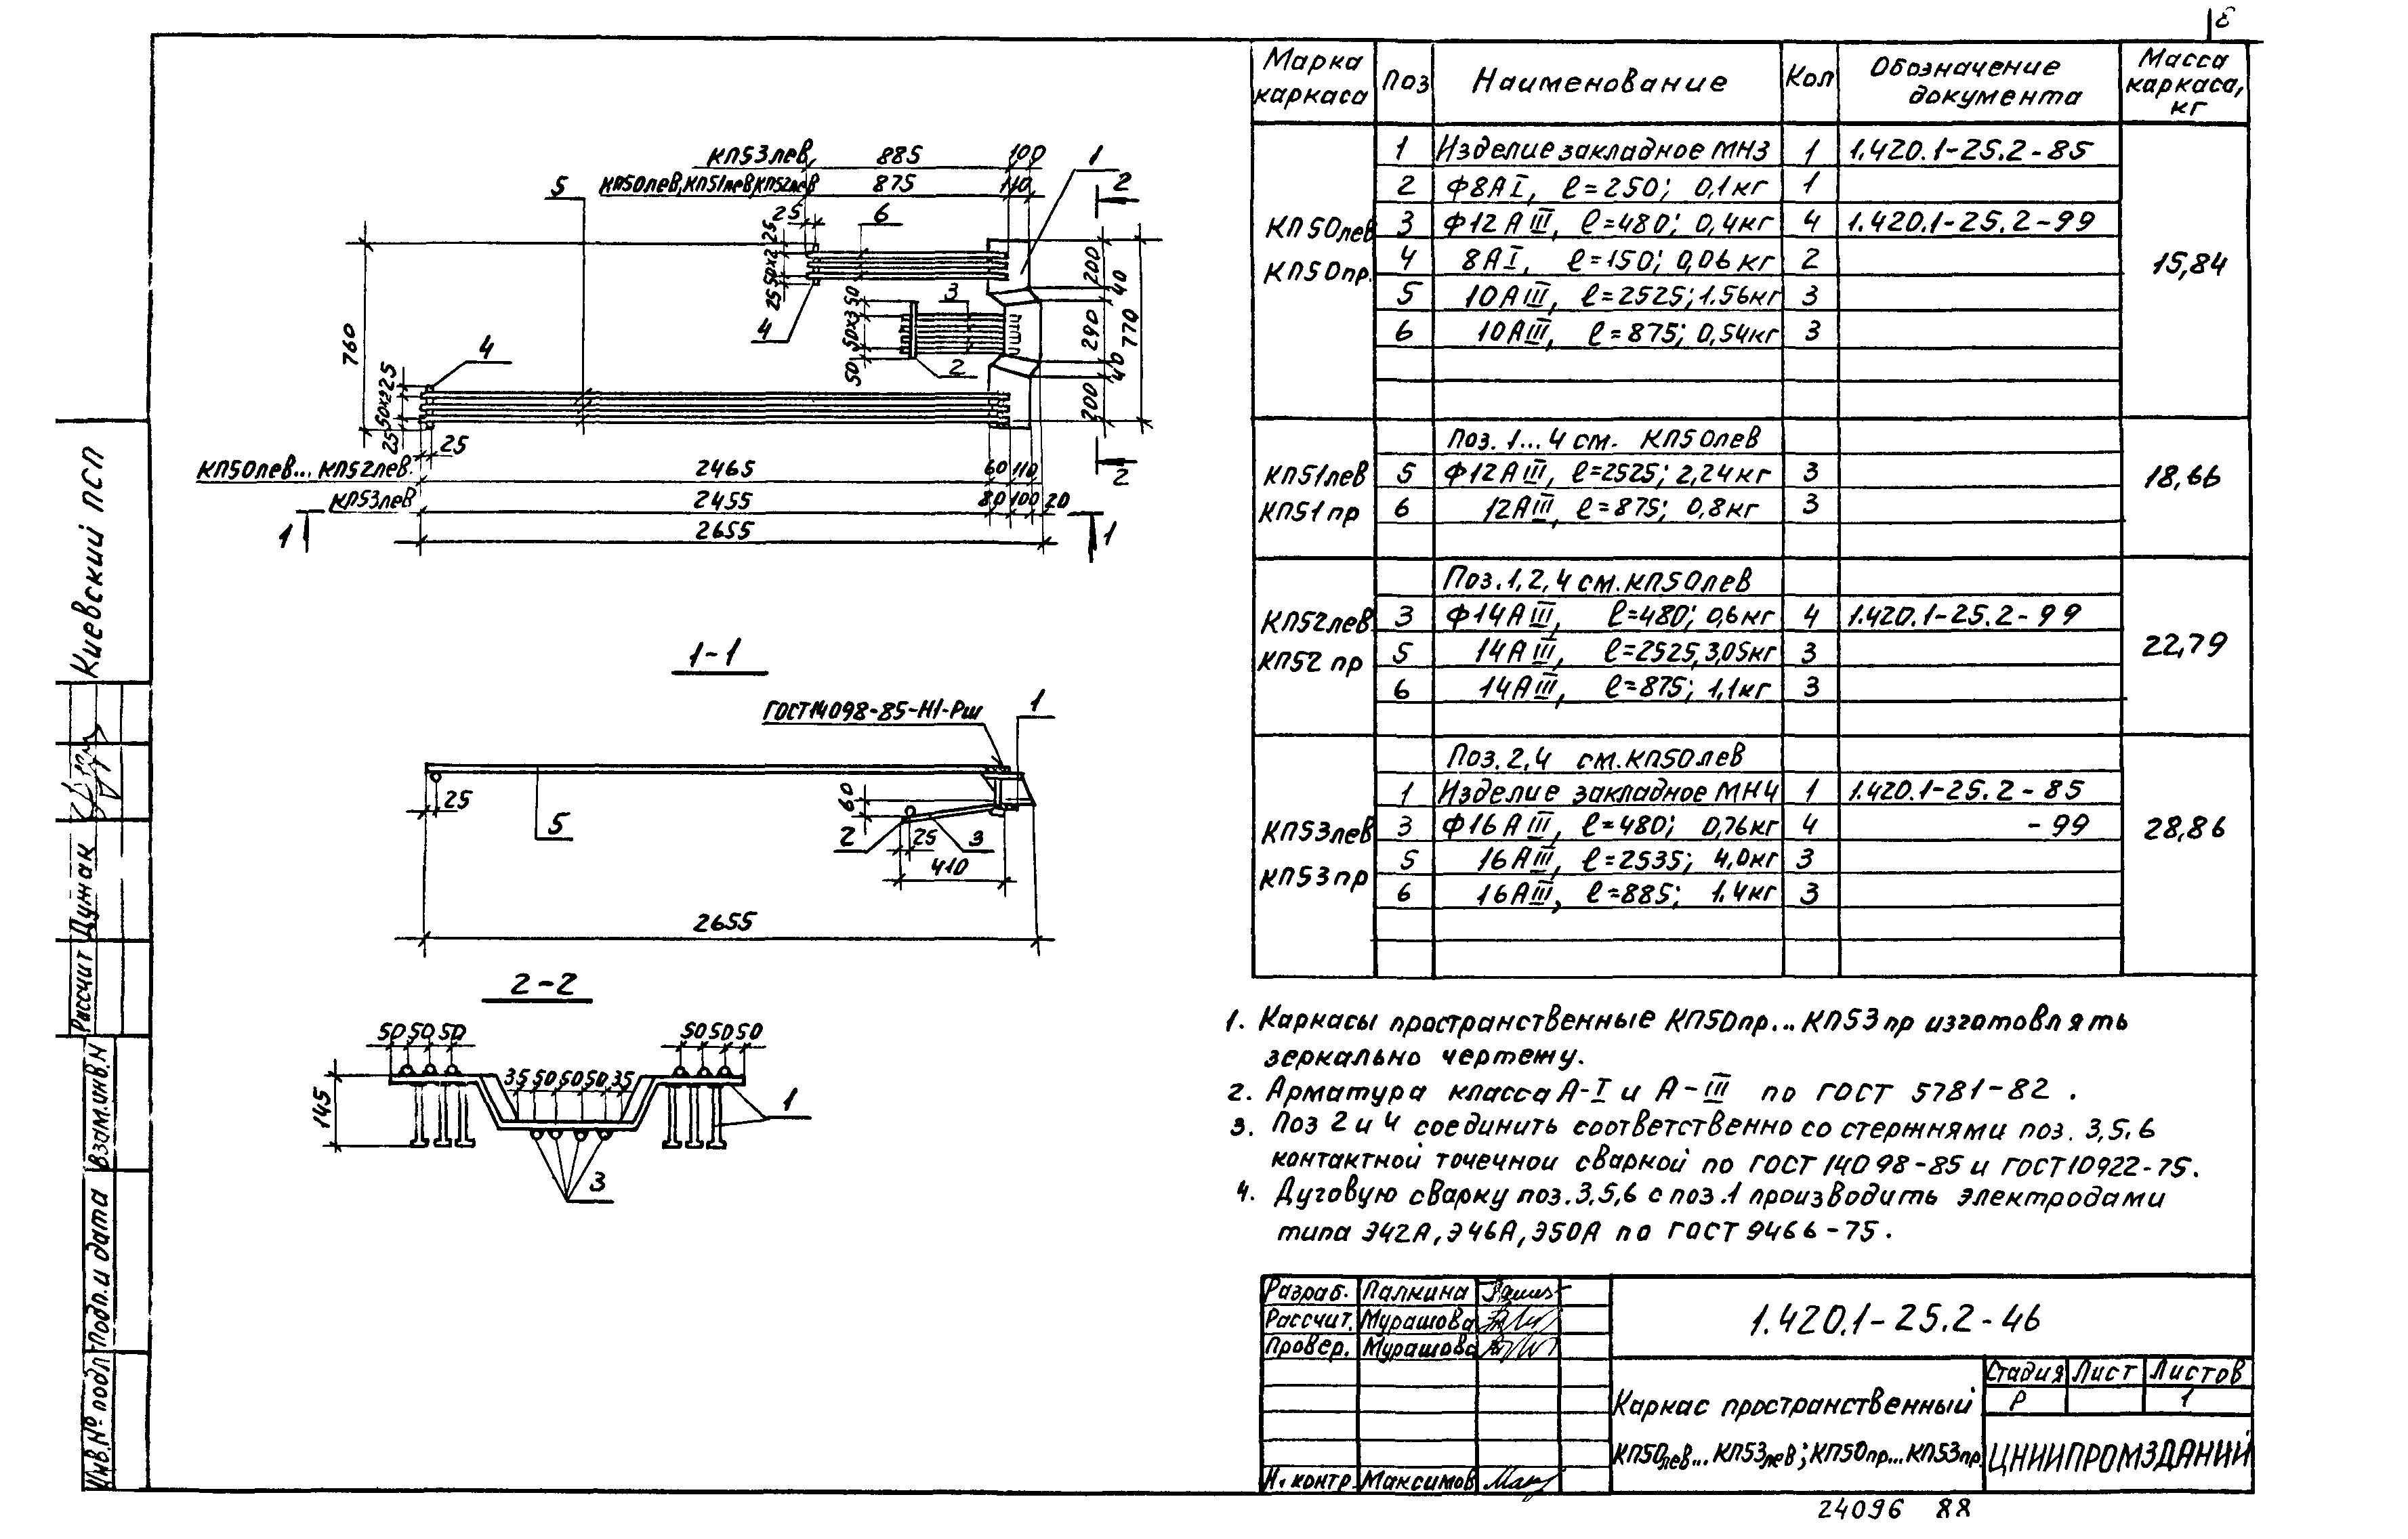 3
КП53лев 885 100
КП50лев, КП51лев, КП52лев 875 110
1
2
5
25 6
25
50х2
25
4
50
50х3
50
3
2
200
40
290
40
200
770
760
4
25
50х2
25
25
КП50лев... КП52лев. 2465 60 110
2
КП53лев 2455 80 100 20
1 2655 1
1-1
ГОСТ14098-85-Н1-Рш
1
25
5
60
2 25 3
410
2655
2-2
50 50 50
50 50 50
35 50 50 50 35
145
1
3
Марка каркаса Поз Наименование Кол Обозначение документа Масса каркаса, кг
КП50лев
КП50пр.
1 Изделие закладное МН3 1 1.420.1-25.2-85
2 Ф8АI, ℓ=250; 0,1кг 1
3 Ф12АIII, ℓ=480; 0,4кг 4 1.420.1-25.2-99
4 8АI, ℓ=150; 0,06кг 2
5 10АIII, ℓ=2525; 1.56кг 3
6 10АIII, ℓ=875; 0,54кг 3
15,84
КП51лев
КП51пр
Поз. 1...4 см. КП50лев
5 Ф12АIII, ℓ=2525; 2,24кг 3
6 12АIII, ℓ=875; 0,8кг 3
18,66
КП52лев
КП52 пр
Поз. 1, 2, 4 см. КП50лев
3 Ф14АIII, ℓ=480; 0,6кг 4 1.420.1-25.2-99
5 14АIII, ℓ=2525, 3,05кг 3
6 14АIII, ℓ=875; 1,1кг 3
22,79
КП53лев
КП53пр
Поз. 2,4 см. КП50лев
1 Изделие закладное МН4 1 1.420.1-25.2-85
3 Ф16АIII, ℓ=480; 0,76кг 4 -99
5 16АIII, ℓ=2535; 4,0кг 3
6 16АIII, ℓ=885; 1.4кг 3
28,86
1. Каркасы пространственные КП50пр...КП53пр изготовлять
зеркально чертежу.
2. Арматура класса А-I и А-III по ГОСТ 5781-82.
3. Поз 2 и 4 соединить соответственно со стержнями поз. 3,5,6
контактной точечной сваркой по ГОСТ 14098-85 и ГОСТ10922-75.
4. Дуговую сварку поз.3,5,6 с поз.1 производить электродами
типа Э42А, Э46А, Э50А по ГОСТ 9466-75.
Разраб. Палкина
Рассчит. Мурашова
Провер. Мурашова
Н. контр. Максимов
1.420.1-25.2-46
Каркас пространственный
КП50лев...КП53лев; КП50пр...КП53пр
Стадия Лист Листов
Р 1
ЦНИИПРОМЗДАНИЙ
24096 88
Киевский ПСП
Рассчит Дунак
Взам.инв.N
Подп.и дата
Инв.№ подл